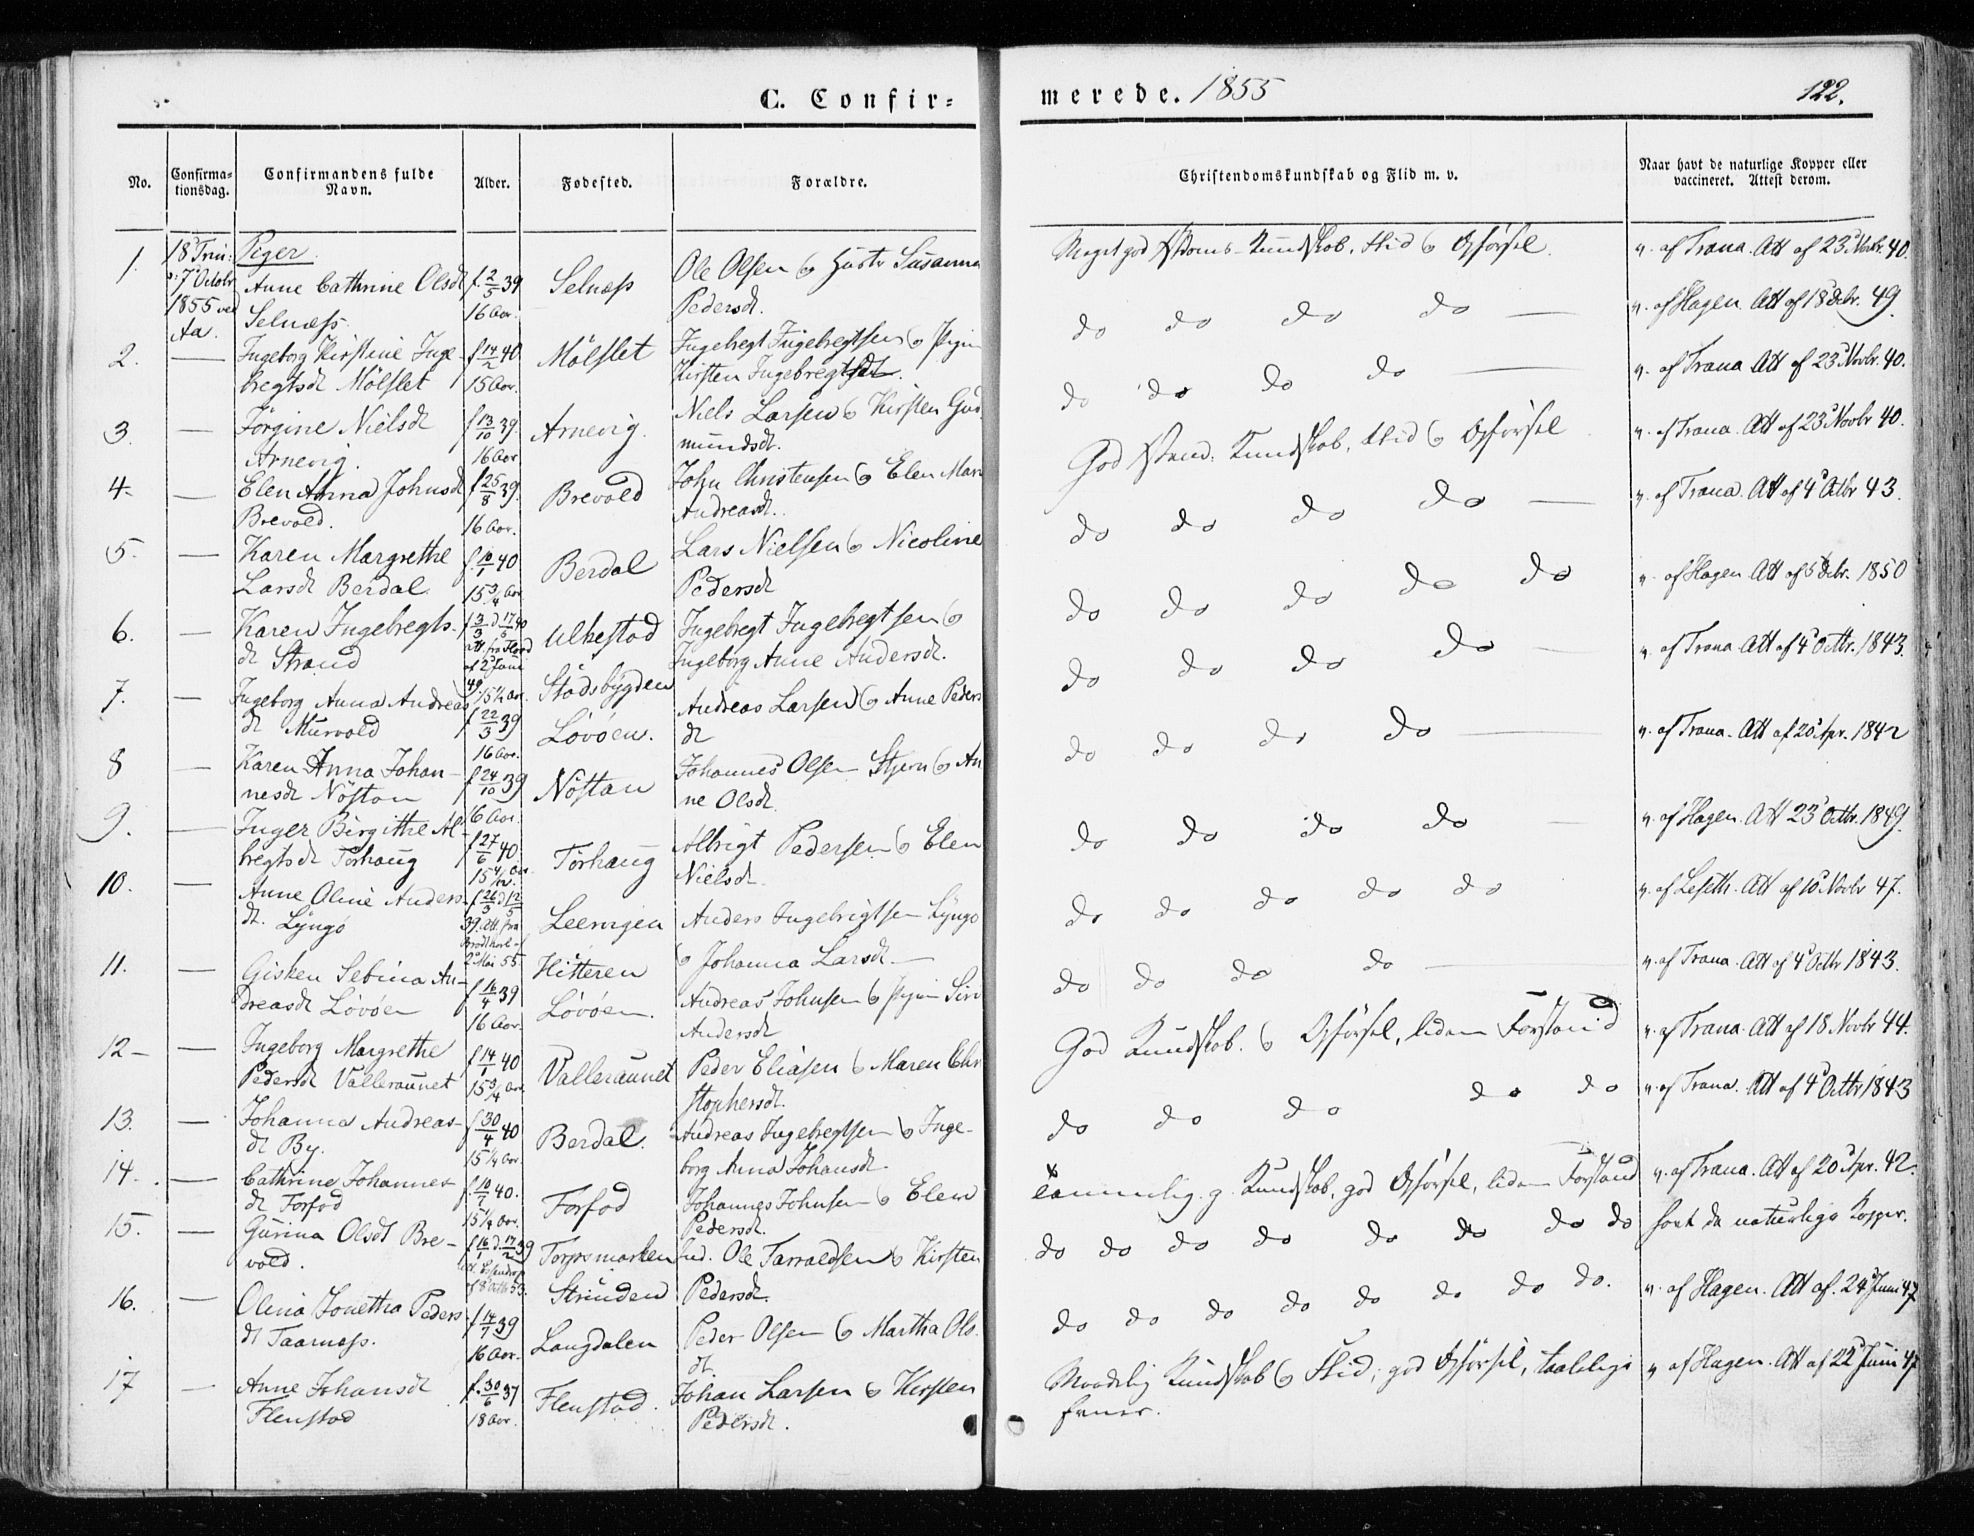 C. Confir-
merede. 1855
122.
No.
Confirma-
tionsdag.
Confirmandens fulde
Navn.
Alder.
Fødested.
Forældre.
Christendomskundskab og Flid m. v.
Naar havt de naturlige Kopper eller
vaccineret. Attest derom.
1.
18 Trin:
7 Octobr
1855 ved
Aa.
Piger.
Anne Cathrine Olsdt
Selnæss.
f. 2/5 39
16 Aar.
Selnæss
Ole Olsen & Hustr Susanna
Pedersdt.
Meget god Kundskab, Flid & Opførsel.
v. af Trana. Att af 23 Novbr. 40.
2.
Ingeborg Kirstine Inge-
bregtsdt Mölslet
f 14/2 40
15 Aar.
Mölslet
Ingebregt Ingebregtsen &
Kirsten Ingebregtsdt.
do do do do
v. af Hagen. Att af 18 Debr. 49.
3.
Jörgine Nielsdt
Arnevig.
f 13/10 39.
16 Aar
Arnevig.
Niels Larsen & Kirsten Gud
mundsdt.
do do do do
v. af Trana Att af 23 Novbr. 40.
4.
Elen Anna Johnsdt
Brevold.
f 25/8 39.
16 Aar.
Brevold
John Christensen & Elen Mari
Andreasdt.
God Kundskab, Flid & Opførsel
v. af Trana. Att af 23 Novbr 40.
5.
Karen Margrethe
Larsdt Berdal.
f. 10/1 40
15 3/4 Aar
Berdal
Lars Nielsen & Nicoline
Pedersdt
do do do do
v. af Trana. Att af 4 Octbr 43.
6.
Karen Ingebregts-
dt Strand
f 3/3 d. 17/5 40
15 1/2 Aar.
Ulkestad
Stadsbygden
Ingebregt Ingebregtsen &
Ingeborg Anne Andersdt.
do do do do do
v. af Hagen Att af 5 Debr. 1850
7.
Ingeborg Anna Andreas
dt Murvold
f 22/3 39
16 Aar.
Lövöen.
Andreas Larsen & Anne Peders
dt
do do do do
v. af Trana Att af 4 Octbr. 1843.
8
Karen Anna Johan-
nesdt Nöstan
f 24/10 39
16 Aar.
Nöstan
Johannes Olsen Stjern & An
ne Olsdt.
do do do do
v. af Trana. Att af 20 Apr. 1842
9.
Inger Birgithe Al-
bregtsdt Torhaug
f 27/6 40.
Torhaug
Albrigt Pedersen & Elen
Nielsdt.
do do do do
v. af Hagen. Att 23 Octbr. 1849.
10.
Anne Oline Anders-
dt. Lyngö
f 26/3 d 12/5
39. Att. fra
2 Mai 55.
Leervigen
Hitteren
Anders Ingebrigtsen Lyngö
& Johanna Larsdt.
do do do do do
v. af Leseth. Att af 10 Novbr 47.
11.
Gisken Sebina An-
dreasdt Lövöen
f 16/4 39
16 Aar.
Lövöen.
Andreas Johnsen & Siri
Andersdt
do do do do
v. af Trana. Att af 4 Octbr 1843.
12
Ingeborg Margrethe
Pedersdt Valleraunet
f 14/1 40
15 3/4 Aar
Valleraunet
Peder Eliasen & Maren Chr
stophersdt.
God Kundskab & Opførsel, liden Forstand
v. af Trana. Att af 18 Novbr 44.
13.
Johanna Andreas-
dt By.
f 30/4 40
15 1/4 Aar.
Berdal.
Andreas Ingebregtsen & Inge-
borg Anna Johansdt.
do do do do do
v. af Trana. Att af 4 Octbr 1843
14.
Cathrine Johannes
dt Forfod
f. 10/7 40.
15 1/4 Aar.
Forfod
Johannes Johnsen & Elen
Pedersdt.
Temmelig g. Kundskab, god Opførsel, liden Forstand
v. af Trana. Att af 20 Apr. 42.
15.
Gurina Olsdt Bre-
vold.
f 16/1 d. 17/2 39
Torpsmarken
Strinden
Ole Tarraldsen & Kirsten
Pedersdt.
do do do do do do do do
havt de naturlige Kopper.
16.
Olina Jonetha Peders
dt Taarnæss.
f 14/7 39
16 Aar.
Langdalen
Peder Olsen & Martha Ols
dt.
do do do do do do do do.
v. af Hagen. Att af. 24 Juni 47
17
Anne Johansdt
Flenstad
f. 30/6 37
18 Aar.
Flenstad.
Johan Larsen & Kirsten
Pedersdt.
Maadelig Kundskab & Flid, god Opførsel, taalelige
Evner.
v af Hagen. Att af 22 Juni 47